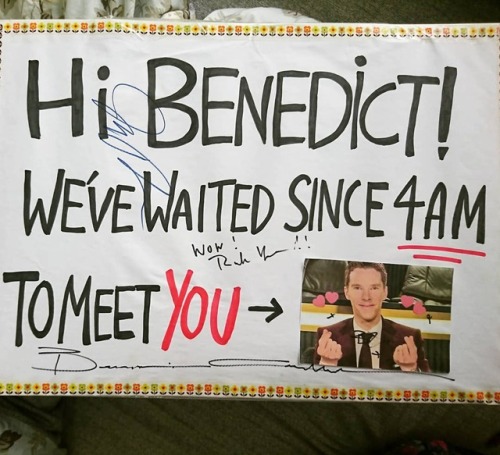 Hi BENEDiCT!
WE'VE WAITED SINCE 4AM
WOW!
Thank You!!!
TO MEET YOU →